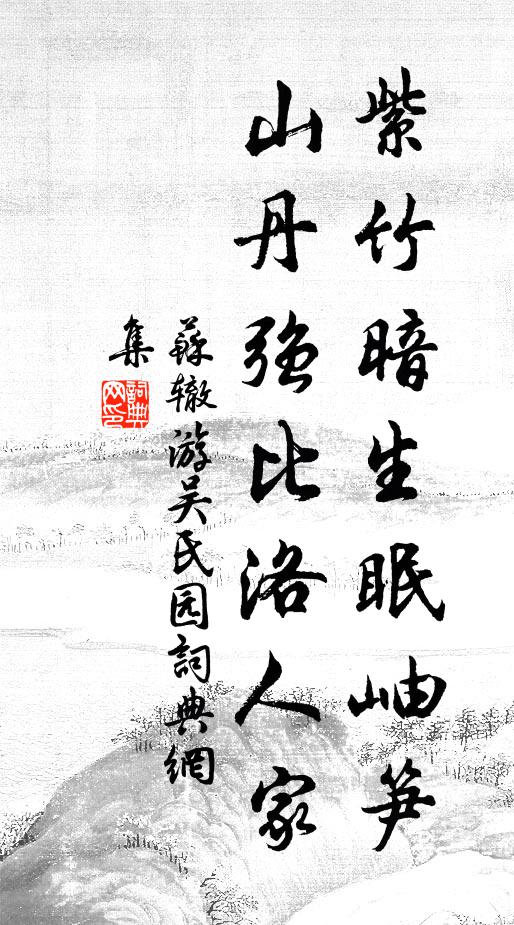 紫竹暗生眠岫笋
山丹強比洛人家
蘇辙游吴氏园詞典網
集
詞典網印